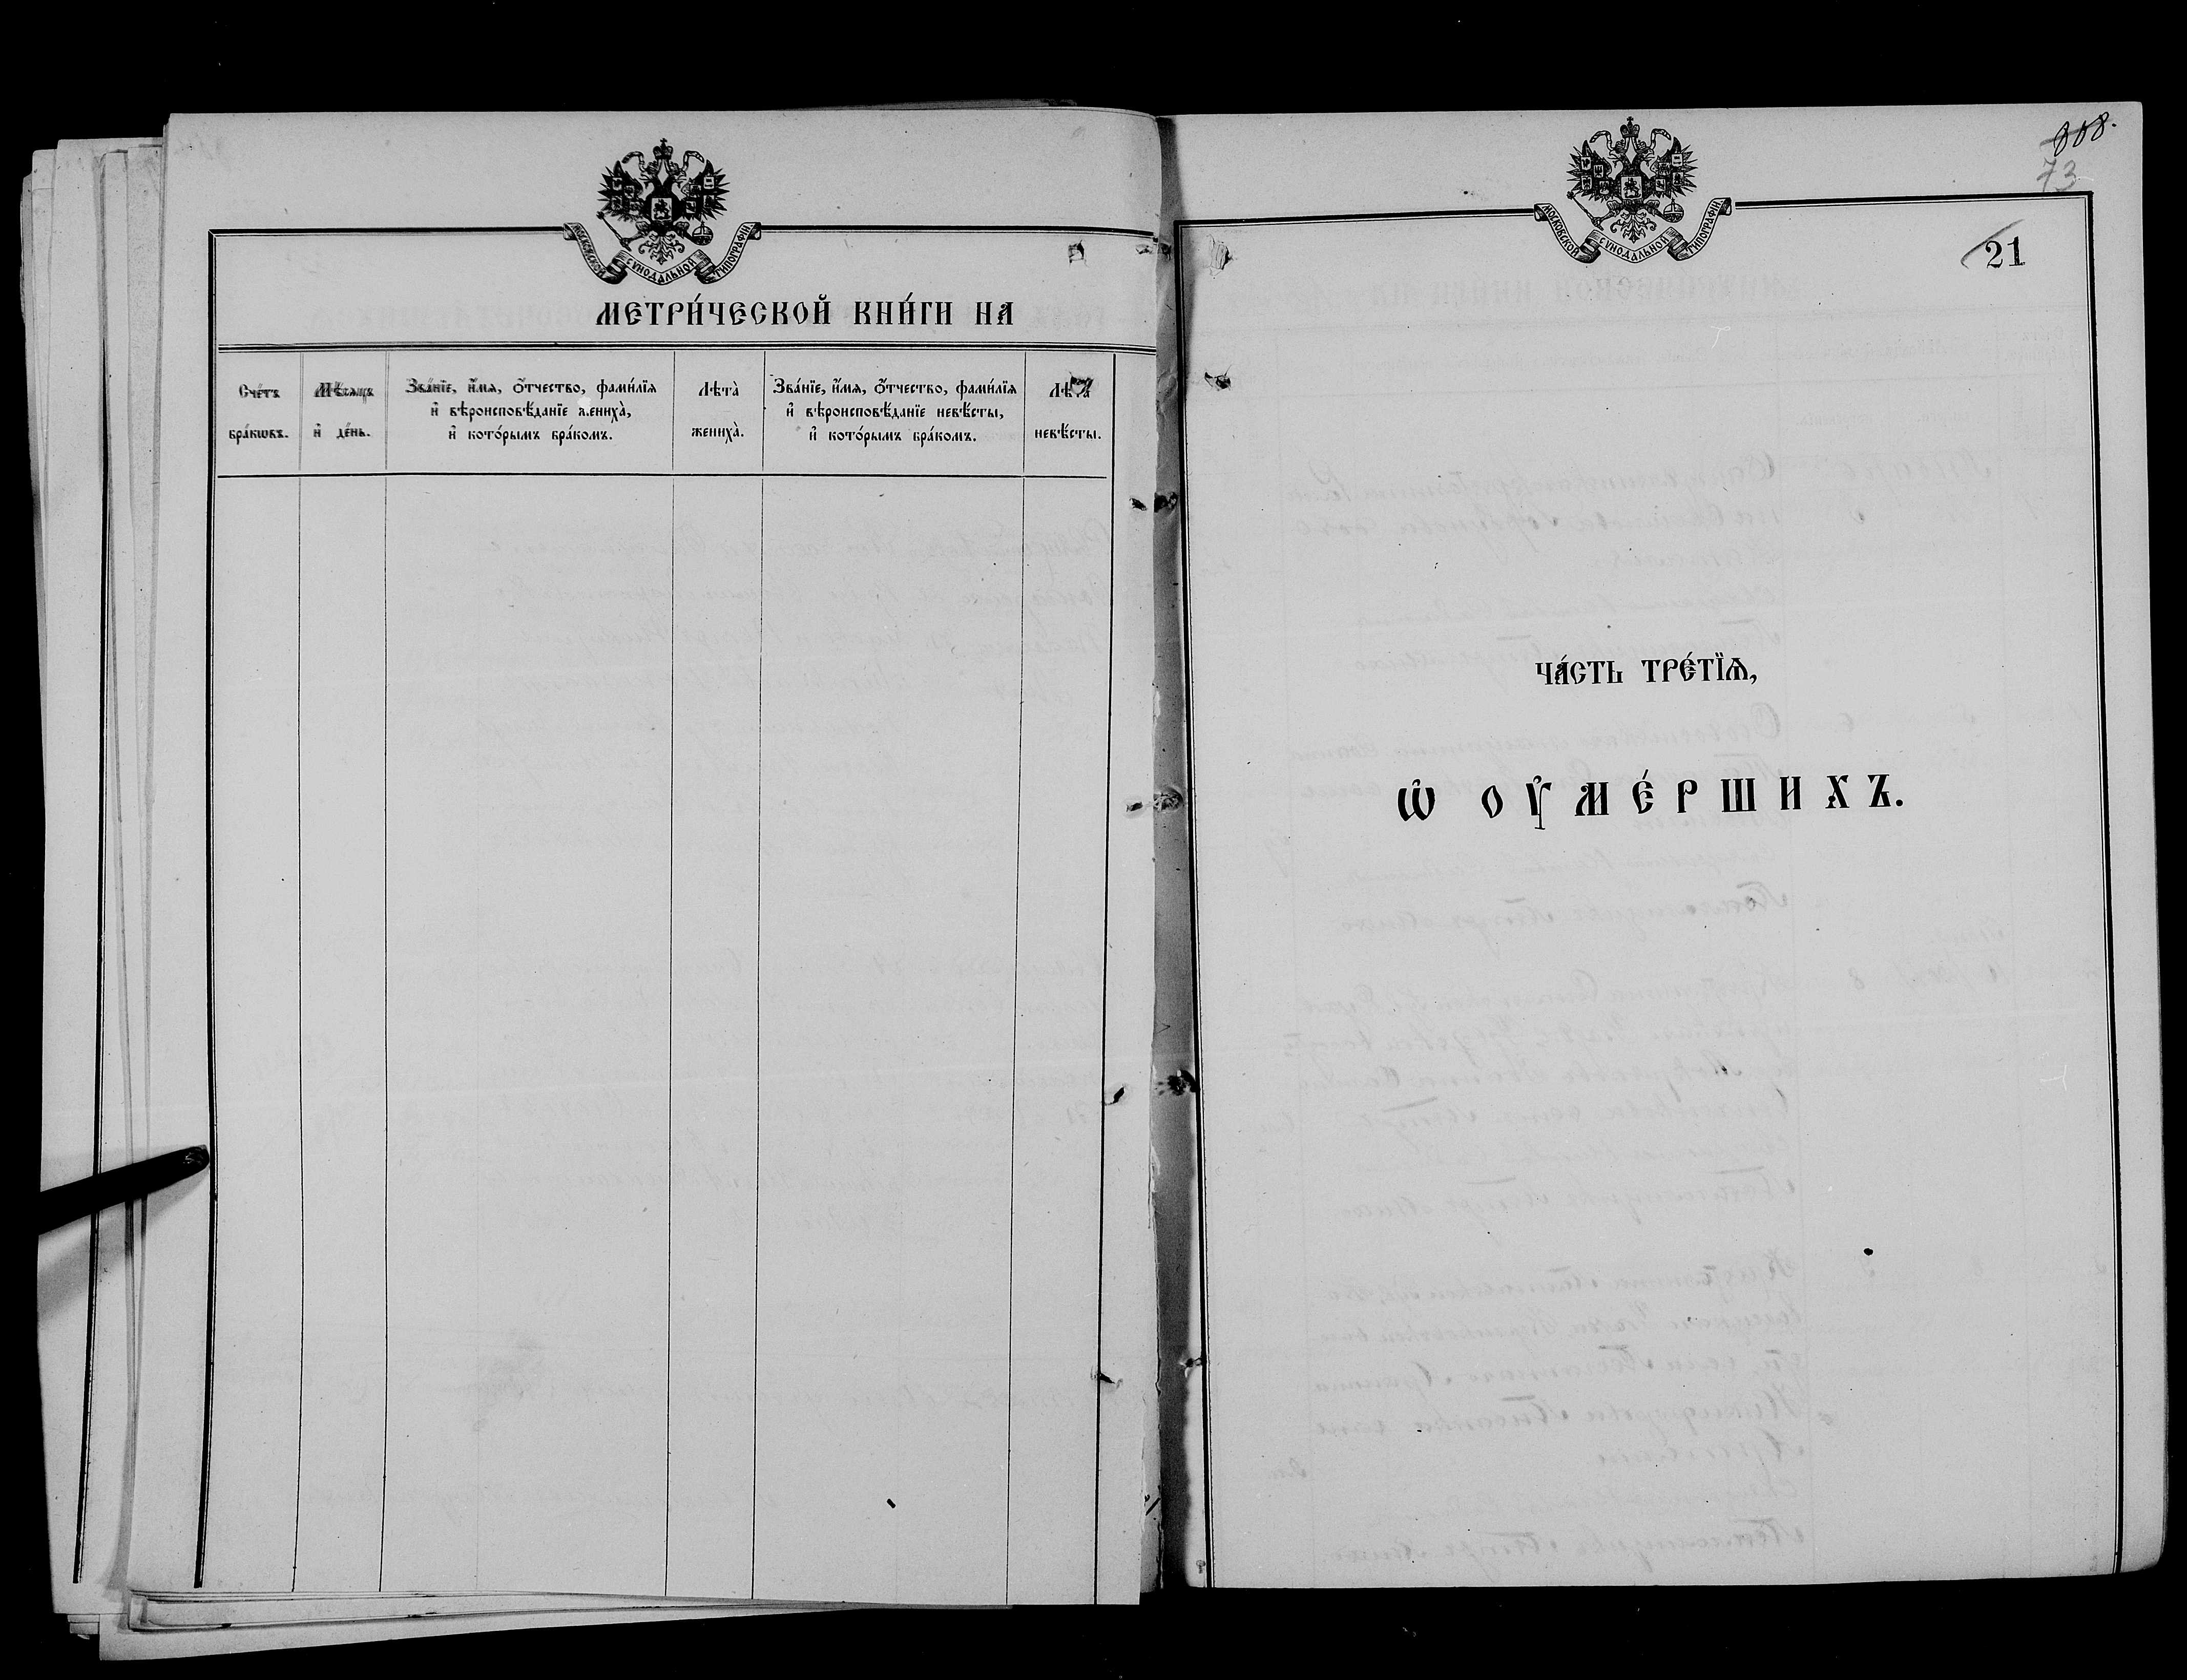 МОСКОВСКОЙ СѴНОДАЛЬНОЙ ТИПОГРАФІИ
МЕТРИ́ЧЕСКОЙ КНИ́ГИ НА
Сче́тъ
бра́кѡвъ.
Мѣ́сѧцъ
и҆ де́нь.
Зва́нїе, и҆́мѧ, ѻ҆́тчество, фами́лїѧ
и҆ вѣроисповѣ́данїе женихà,
и҆ кото́рымъ бра́комъ.
Лѣтà
женихà.
Зва́нїе, и҆́мѧ, ѻ҆́тчество, фами́лїѧ
и҆ вѣроисповѣ́данїе невѣ́сты,
и҆ кото́рымъ бра́комъ.
Лѣтà
невѣ́сты.
73
МОСКОВСКОЙ СѴНОДАЛЬНОЙ ТИПОГРАФІИ
21
ЧА́СТЬ ТРЕ́ТЇѦ,
Ѡ҆ ОУ҆МЕ́РШИХЪ.